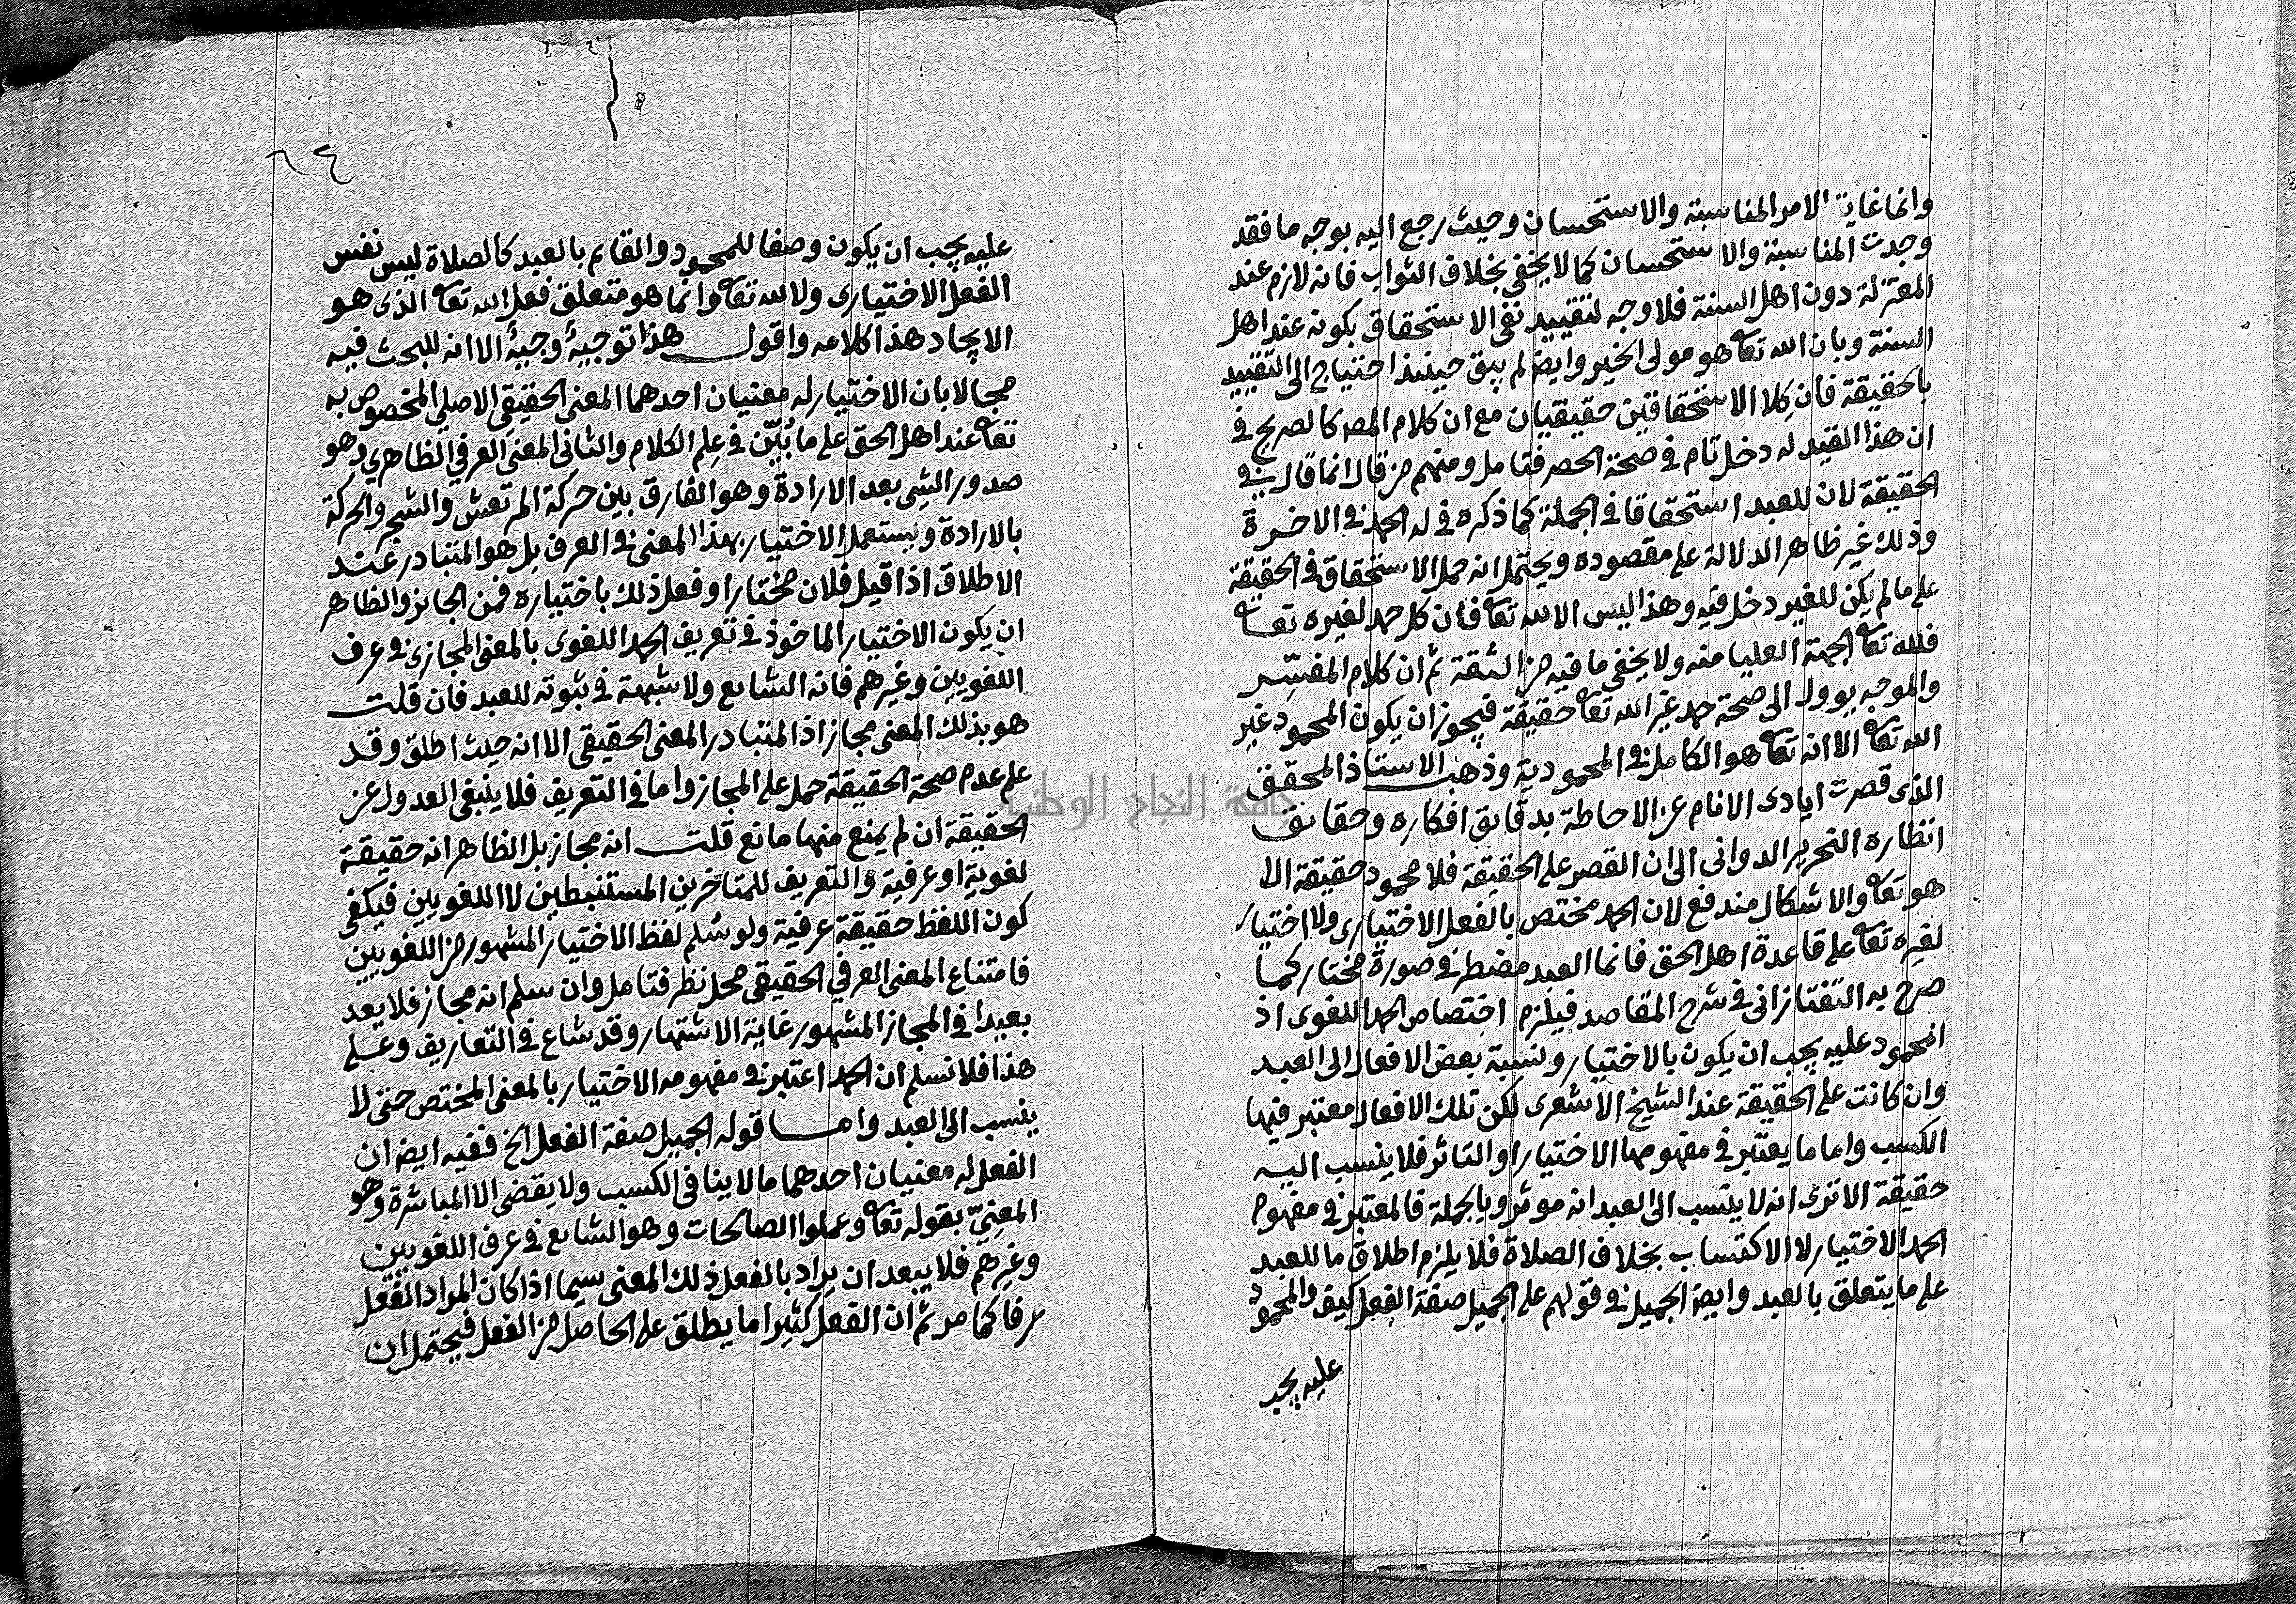 وانما غاية الامر المناسبة والاستحسان وحيث رجع اليه بوجه ما فقد
وجدت المناسبة والاستحسان كما لا يخفى بخلاف الثواب فانه لازم عند
المعتزلة دون اهل السنة فلا وجه لتقييد نفى الاستحقاق بكونه عند اهل
السنة وبان الله تعا هو مولى الخير وايضا لم يبق حينئذ احتياج الى التقييد
بالحقيقة فان كلا الاستحقاقين حقيقيان مع ان كلام المص كالصريح في
ان هذا القيد له دخل تام في صحة الحصر فتامل ومنهم من قال انما قال في
الحقيقة لان للعبد استحقاقا في الجملة كما ذكره في له الحمد في الاخرة
وذلك غير ظاهر الدلالة على مقصوده ويحتمل انه حمل الاستحقاق في الحقيقة
على ما لم يكن للغير دخل فيه وهذا ليس الا لله تعا فان كل حمد لغيره تعا
فلله تعا الجهة العليا منه ولا يخفى ما فيه من الشقة ثم ان كلام المفسّر
والموجه يوول الى صحة حمد غير الله تعا حقيقة فيجوز ان يكون المحمود غير
الله تعا الا انه تعا هو الكامل في المحمودية وذهب الاستاذ المحقق
الذى قصرت ايادى الانام عن الاحاطة بدقايق افكاره وحقايق
انظاره النحرير الدوانى الى ان القصر على الحقيقة فلا محمود حقيقة الا
هو تعا والاشكال مندفع لان الحمد مختص بالفعل الاختيارى ولا اختيار
لغيره تعا على قاعدة اهل الحق فانما العبد مضطر في صورة مختار كما
صرح به التفتازانى في شرح المقاصد فيلزم اختصاص الحمد اللغوى اذ
المحمود عليه يجب ان يكون بالاختيار ونسبة بعض الافعال الى العبد
وان كانت على الحقيقة عند الشيخ الاشعرى لكن تلك الافعال معتبر فيها
الكسب واما ما يعتبر في مفهومها الاختيار او التاثر فلا ينسب اليه
حقيقة الا ترى انه لا ينسب الى العبد انه موثر وبالجملة فالمعتبر في مفهوم
الحمد الاختيار لا الاكتساب بخلاف الصلاة فلا يلزم اطلاق ما للعبد
على ما يتعلق بالعبد وايضا الجميل في قولهم على الجميل صفة الفعل كيف والمحمود
عليه يجب
٦٤
عليه يجب ان يكون وصفا للمحمود والقايم بالعبد كالصلاة ليس نفس
الفعل الاختيارى ولا لله تعا وانما هو متعلق فعل الله تعا الذى هو
الايجاد هذا كلامه واقول هذا توجيهٌ وجيهٌ الا انه للبحث فيه
مجالا بان الاختيار له معنيان احدهما المعنى الحقيقى الاصلي المخصوص به
تعا عند اهل الحق على ما بُيّن في علم الكلام والثانى المعنى العرفي الظاهري وهو
صدور الشيء بعد الارادة وهو الفارق بين حركة المرتعش والشجر والحركة
بالارادة ويستعمل الاختيار بهذا المعنى في العرف بل هو المتبادر عند
الاطلاق اذا قيل فلان مختار او فعل ذلك باختياره فمن الجايز والظاهر
ان يكون الاختيار الماخوذ في تعريف الحمد اللغوى بالمعنى المجازى في عرف
اللغويين وغيرهم فانه الشايع ولا شبهة في ثبوته للعبد فان قلت
هو بذلك المعنى مجاز اذ المتبادر المعنى الحقيقى الا انه حيث اطلق وقد
علم عدم صحة الحقيقة حمل على المجاز واما في التعريف فلا ينبغى العدول عن
الحقيقة ان لم يمنع منها مانع قلت انه مجاز بل الظاهر انه حقيقة
لغوية او عرفية والتعريف للمتاخرين المستنبطين لا اللغويين فيكفى
كون اللفظ حقيقة عرفية ولو سُلم لفظ الاختيار المشهور من اللغويين
فامتناع المعنى العرفي الحقيقى محل نظر فتامل وان سلم انه مجاز فلا يعد
بعيدا في المجاز المشهور غاية الاشتهار وقد شاع في التعاريف وعلى
هذا فلا نسلم ان الحمد اعتبر في مفهومه الاختيار بالمعنى المختص حتى لا
ينسب الى العبد واما قوله الجميل صفة الفعل الخ ففيه ايضا ان
الفعل له معنيان احدهما ما لا ينافى الكسب ولا يقضى الا المباشرة وهو
المعنيّ بقوله تعا وعملوا الصالحات وهو الشايع في عرف اللغويين
وغيرهم فلا يبعد ان يراد بالفعل ذلك المعنى سيما اذا كان المراد الفعل
عرفا كما مر ثم ان الفعل كثيرا ما يطلق على الحاصل من الفعل فيحتمل ان
جامعة النجاح الوطنية